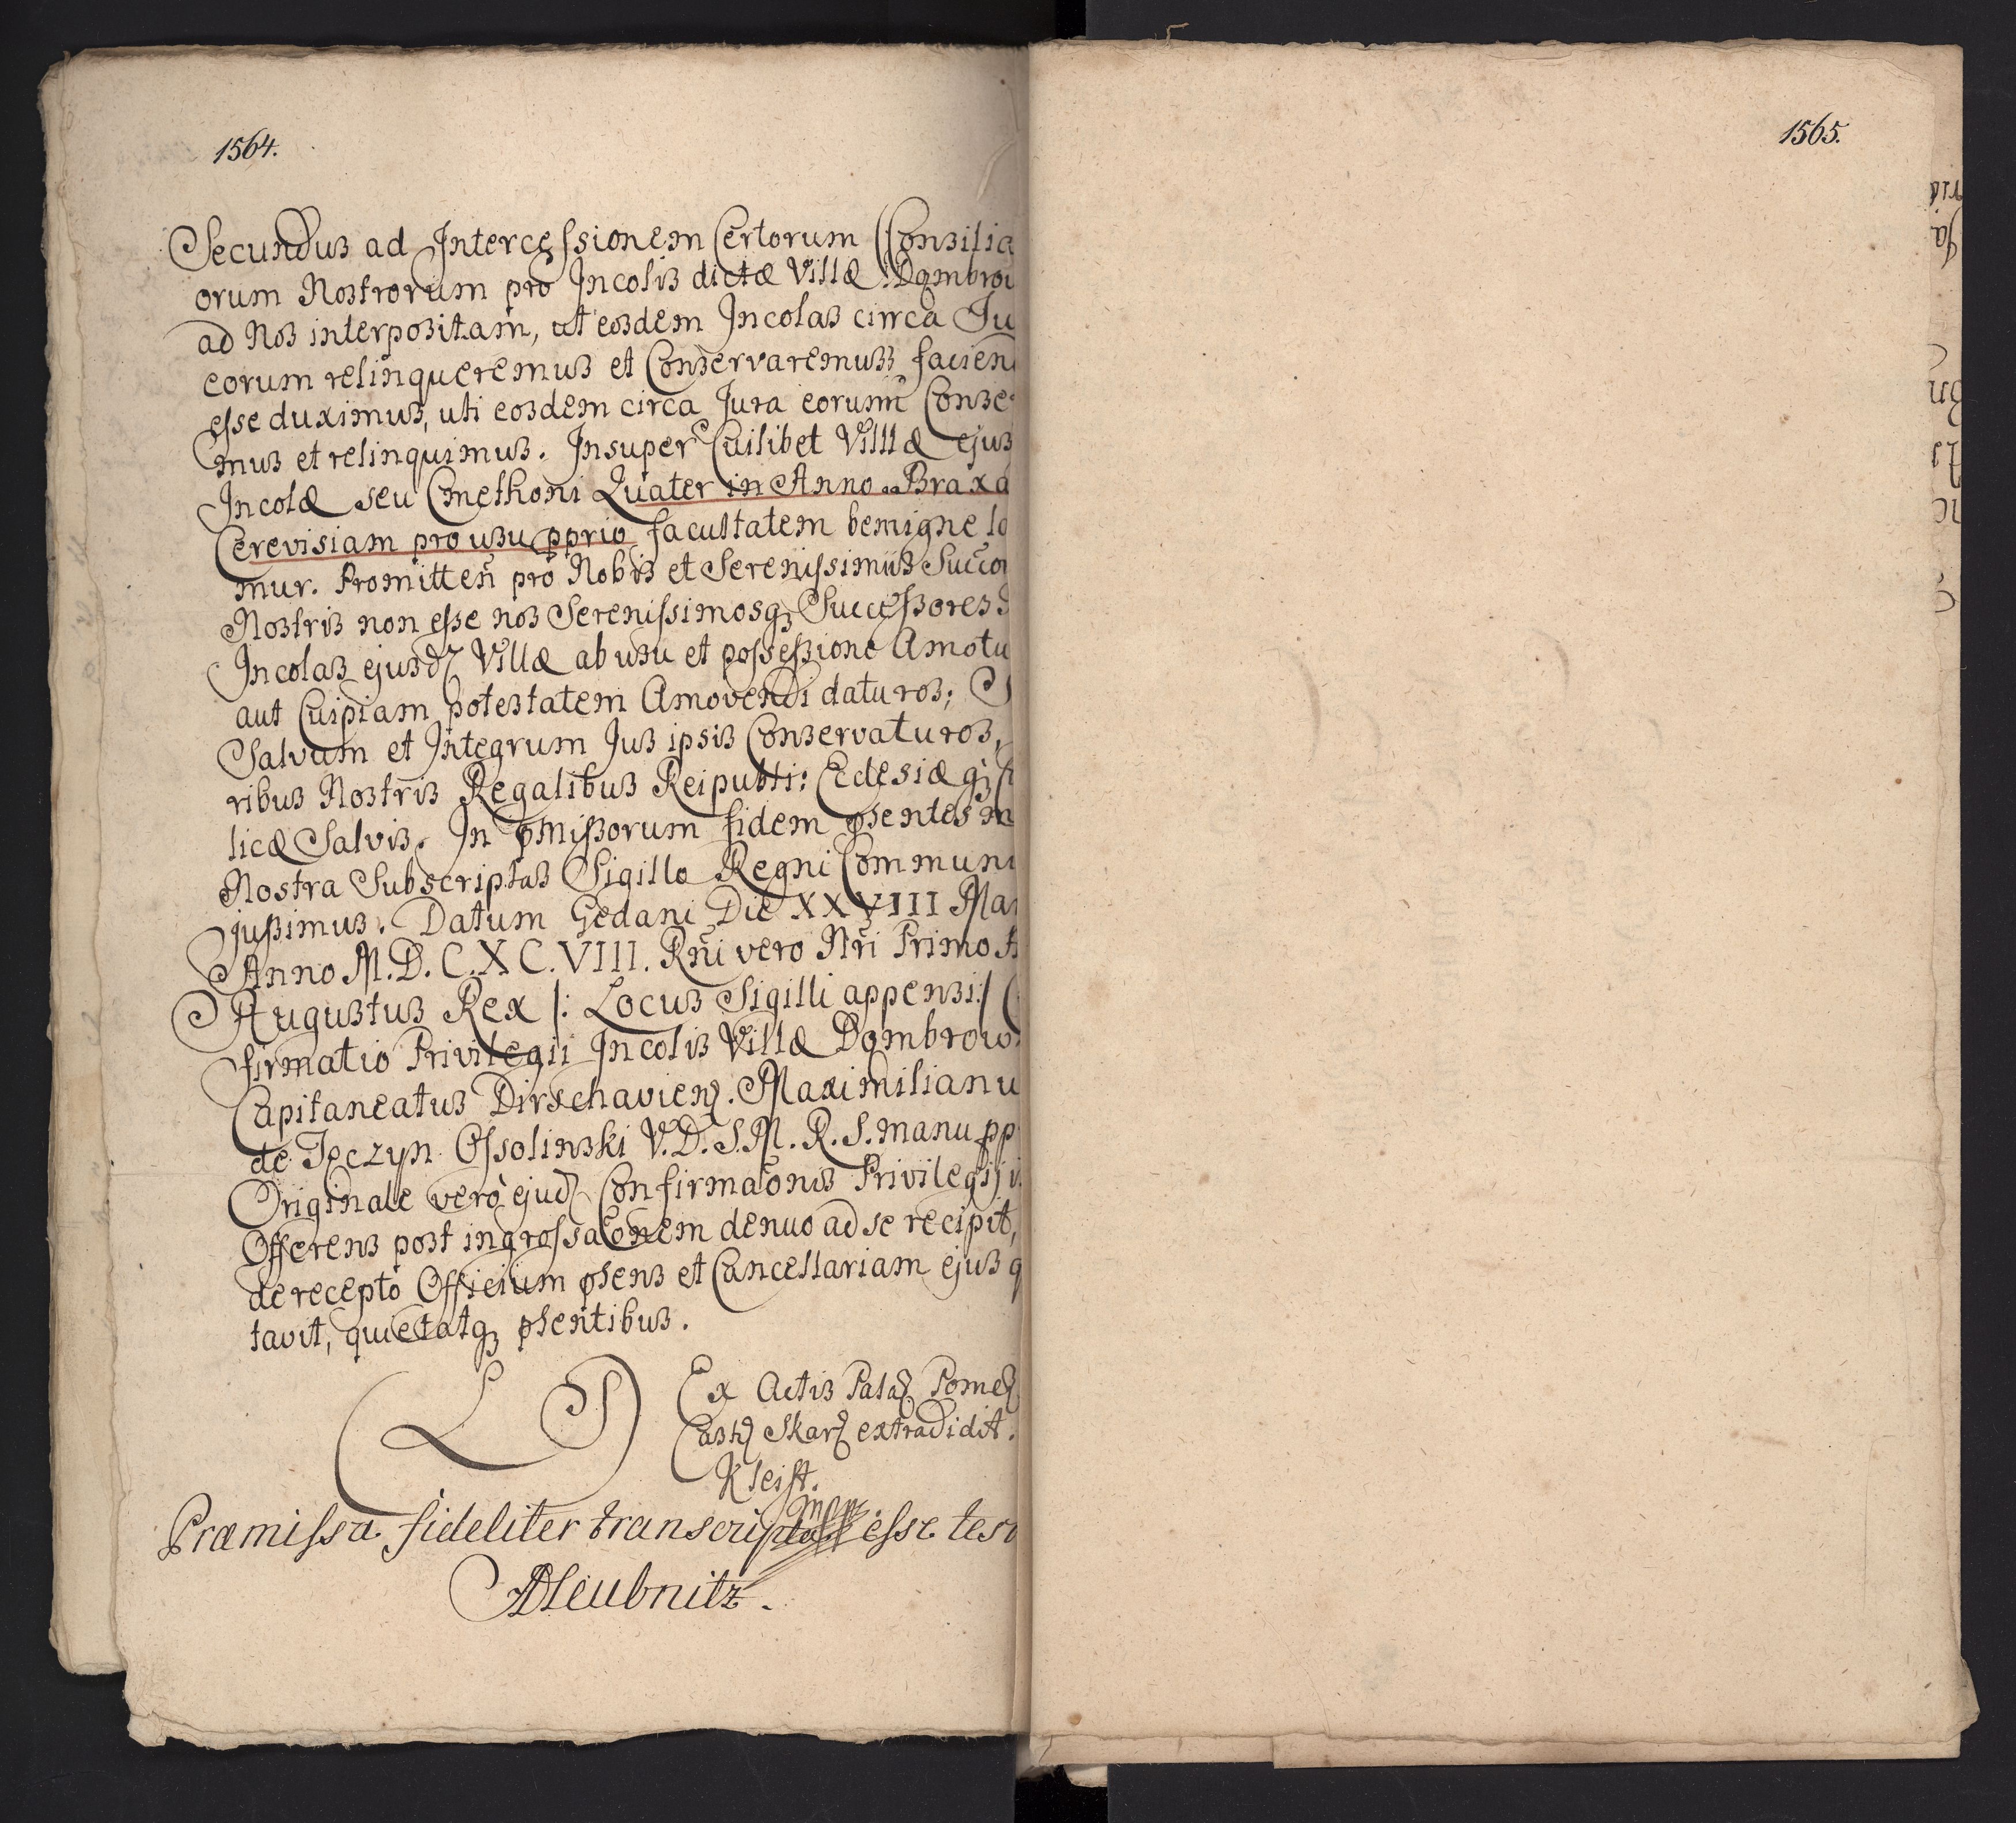 1564.
Secundus ad Intercessionem Certorum Consilia
orum Nostrorum pro Incolis dictæ Villæ Dąmbrow
ad Nos interpositam, ut eosdem Incolas circa Ju
eorum relinqueremus et Conservaremus, facien
esse duximus, uti eosdem circa Jura eorum Conser
mus et relinquimus. Insuper Cuilibet Villæ ejus
Incolæ seu Cmethoni Quater in Anno Braxa
Cerevisiam pro usu pprio facultatem benigne
mur. Promitteñ pro Nobis et Serenissimis
Nostris non esse nos Serenissimosq₃ Successores
Incolas ejusd Villæ ab usu et possessione Amotu
aut Cuipiam potestatem Amovendi daturos;
Salvum et Integrum Jus ipsis Conservaturos,
ribus Nostris Regalibus Reipubli: Ecclesiæ q₃
licæ Salvis. In pmissorum fidem psentes m
Nostra Subscriptas Sigillo Regni Communi
jussimus. Datum Gedani Die XXVIII Mar
Anno M.D.C.XC.VIII. Rñi vero Nri Primo
Augustus Rex /: Locus Sigilli appensi:/
firmatio Privilegii Incolis Villæ Dąmbrow
Capitaneatus Dirschavien. Maximilianu
de Tęczyn Ossolinski V.D.S.M.R.S. manu pp
Originale verò ejud Confirmaõnis Privilegij
Offerens post ingrossaõnem denuo ad se recipit,
de recepto Officium psens et Cancellariam ejus q
tavit, quietatq₃ psentibus.
L S
Ex Actis Pala Pome
Cast Skar extradidit.
Kleist.
mpp
Præmissa fideliter transcripta esse test
ADleubnitz.
1565.